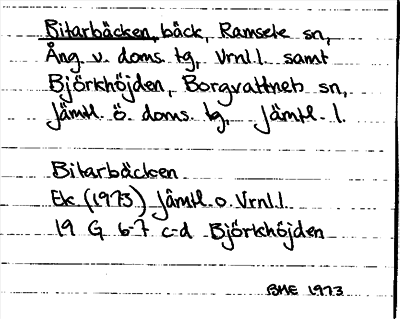 Bitarbäcken, bäck, Ramsele sn,
Ång. v. doms. tg, Vrnl.l. samt
Björkhöjden, Borgvattnets sn,
Jämtl. ö. doms. tg, Jämtl. l.
Bitarbäcken
Ek (1973) Jämtl. o. Vrnl.l.
19 G 6-7 c-d Björkhöjden
BME 1973